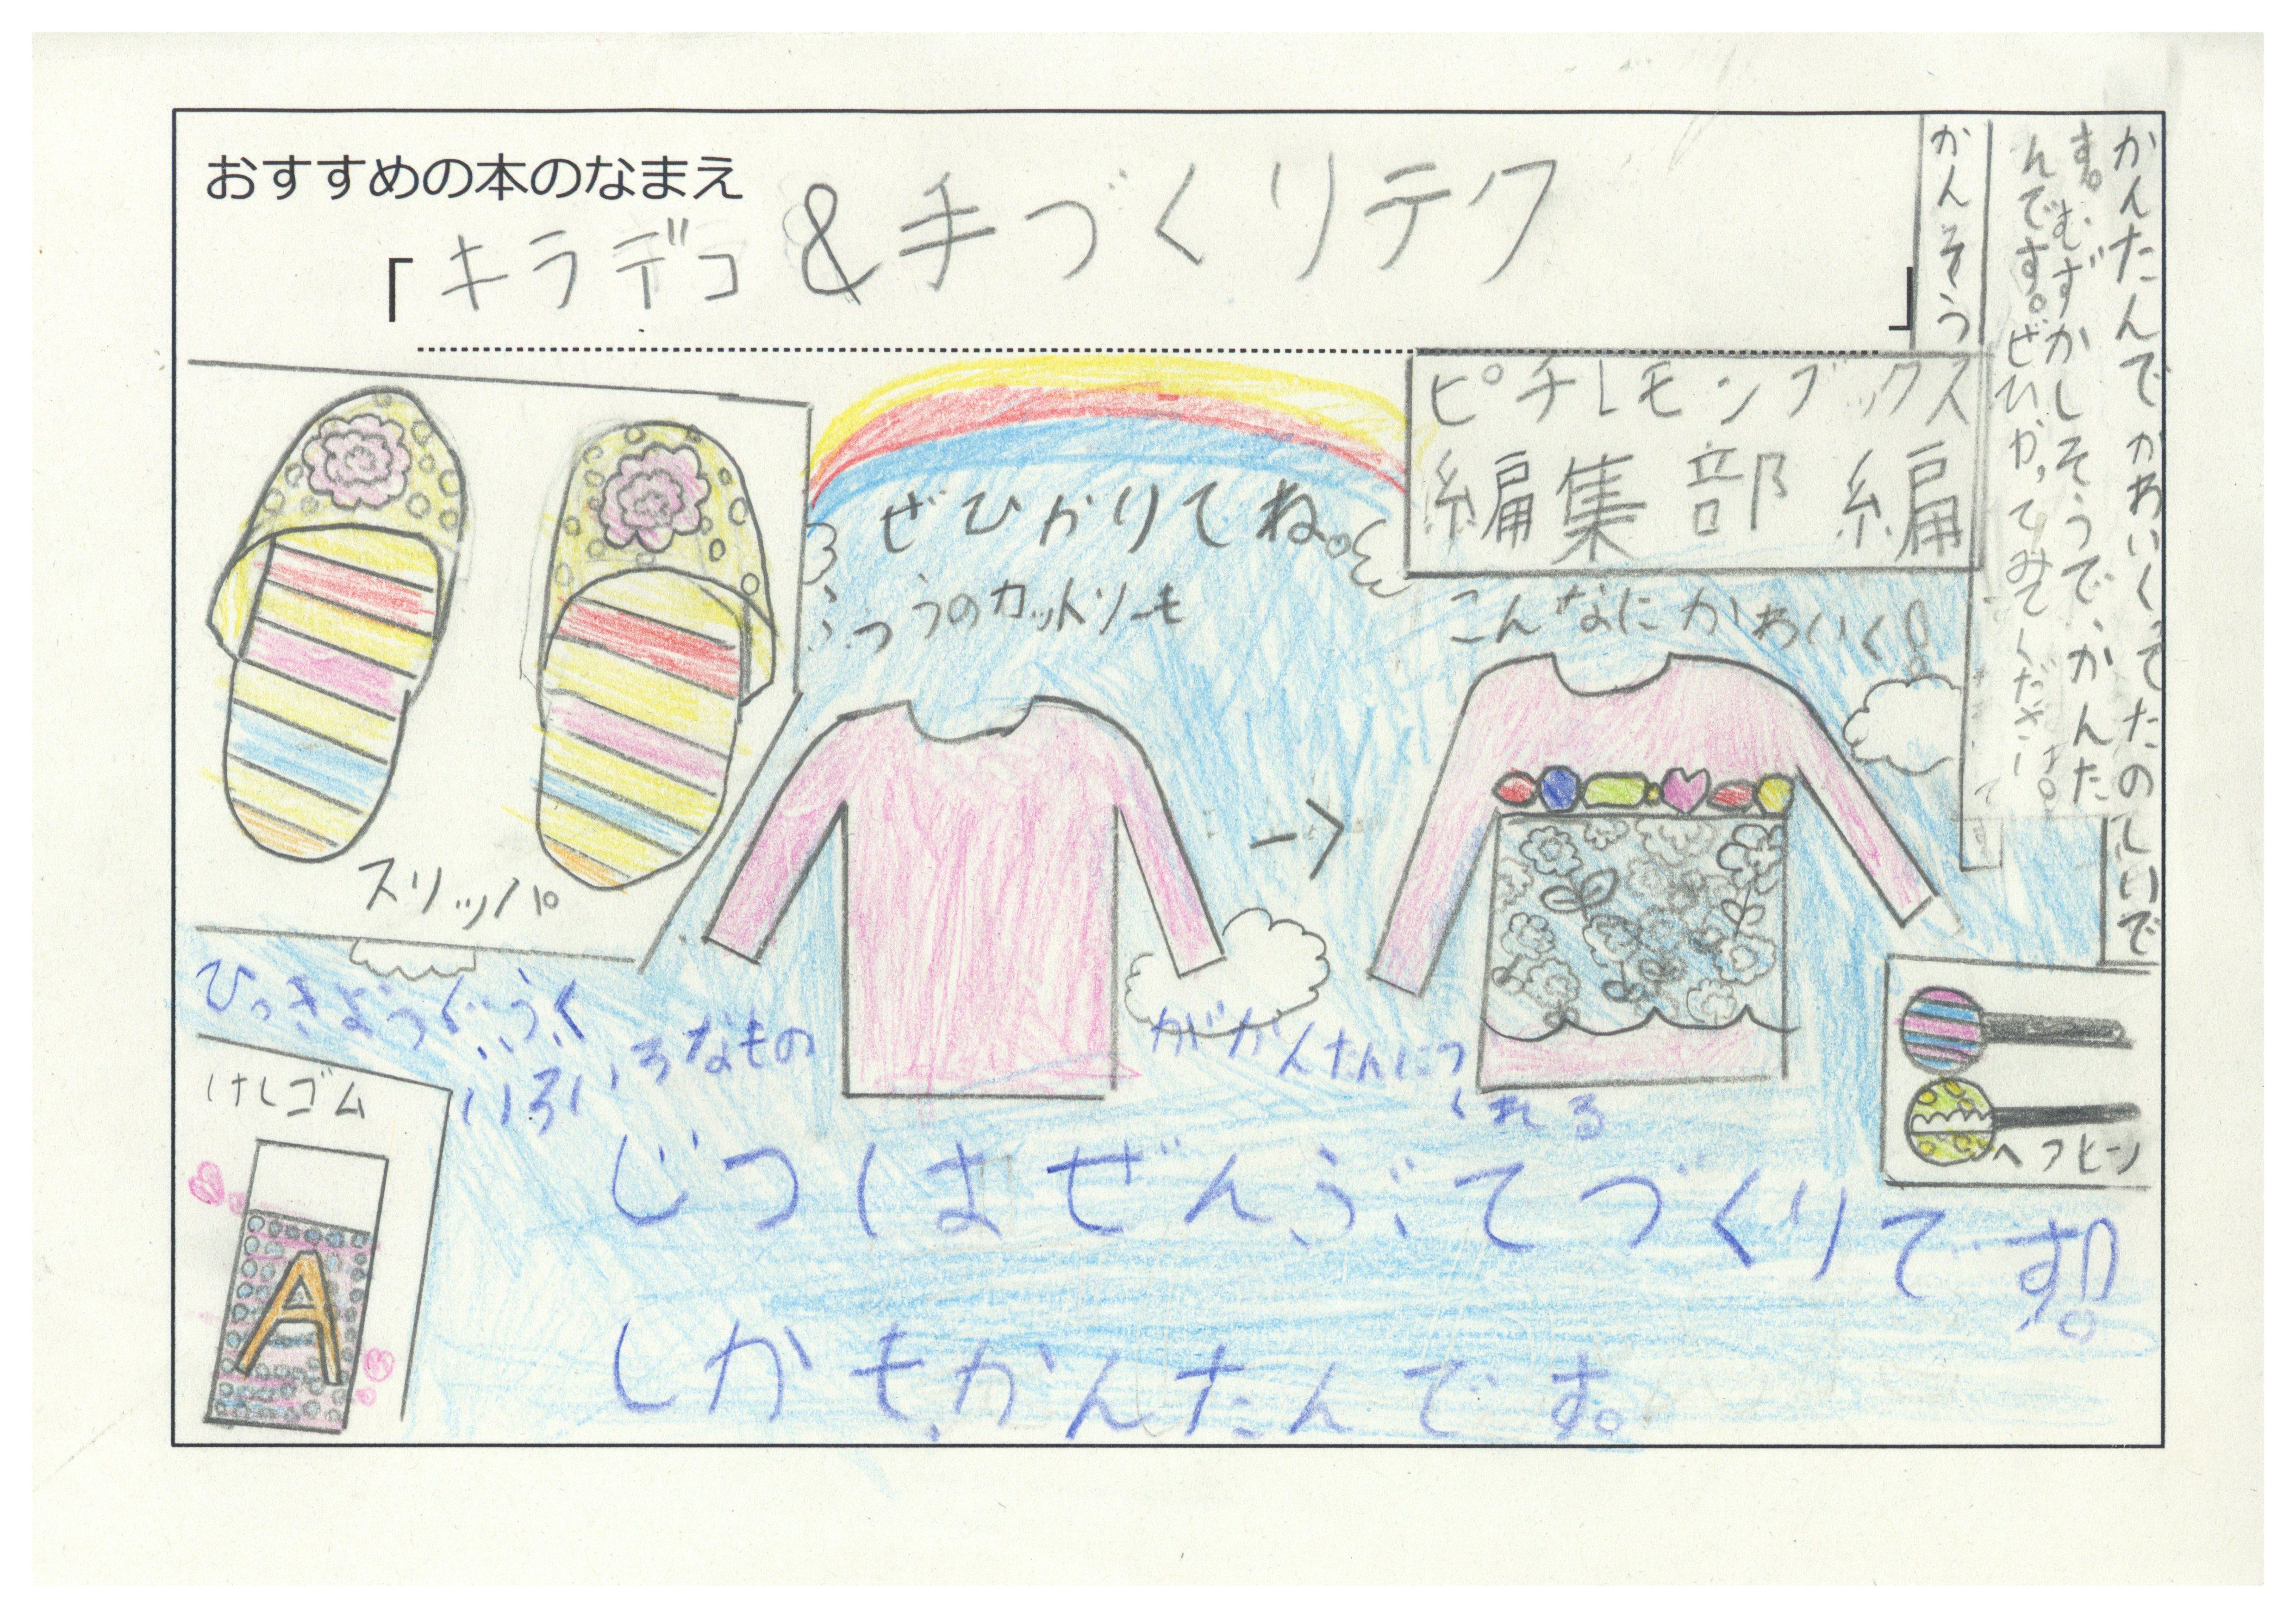 おすすめの本のなまえ
「キラデコ&手づくりテク」
ピチレモンブックス
編集部 編
かんそう
かんたんでかわいくてたのしいで
す。むずかしそうで、かんた
んです。ぜひかってみてください。
ぜひかりてね。
ふつうのカットソーも
こんなにかわいく!
スリッパ
ひっきようぐうく
いろいろなもの
がかんたんにつ
くれる
けしゴム
A
ヘアピン
じつはぜんぶてづくりです!
しかも、かんたんです。